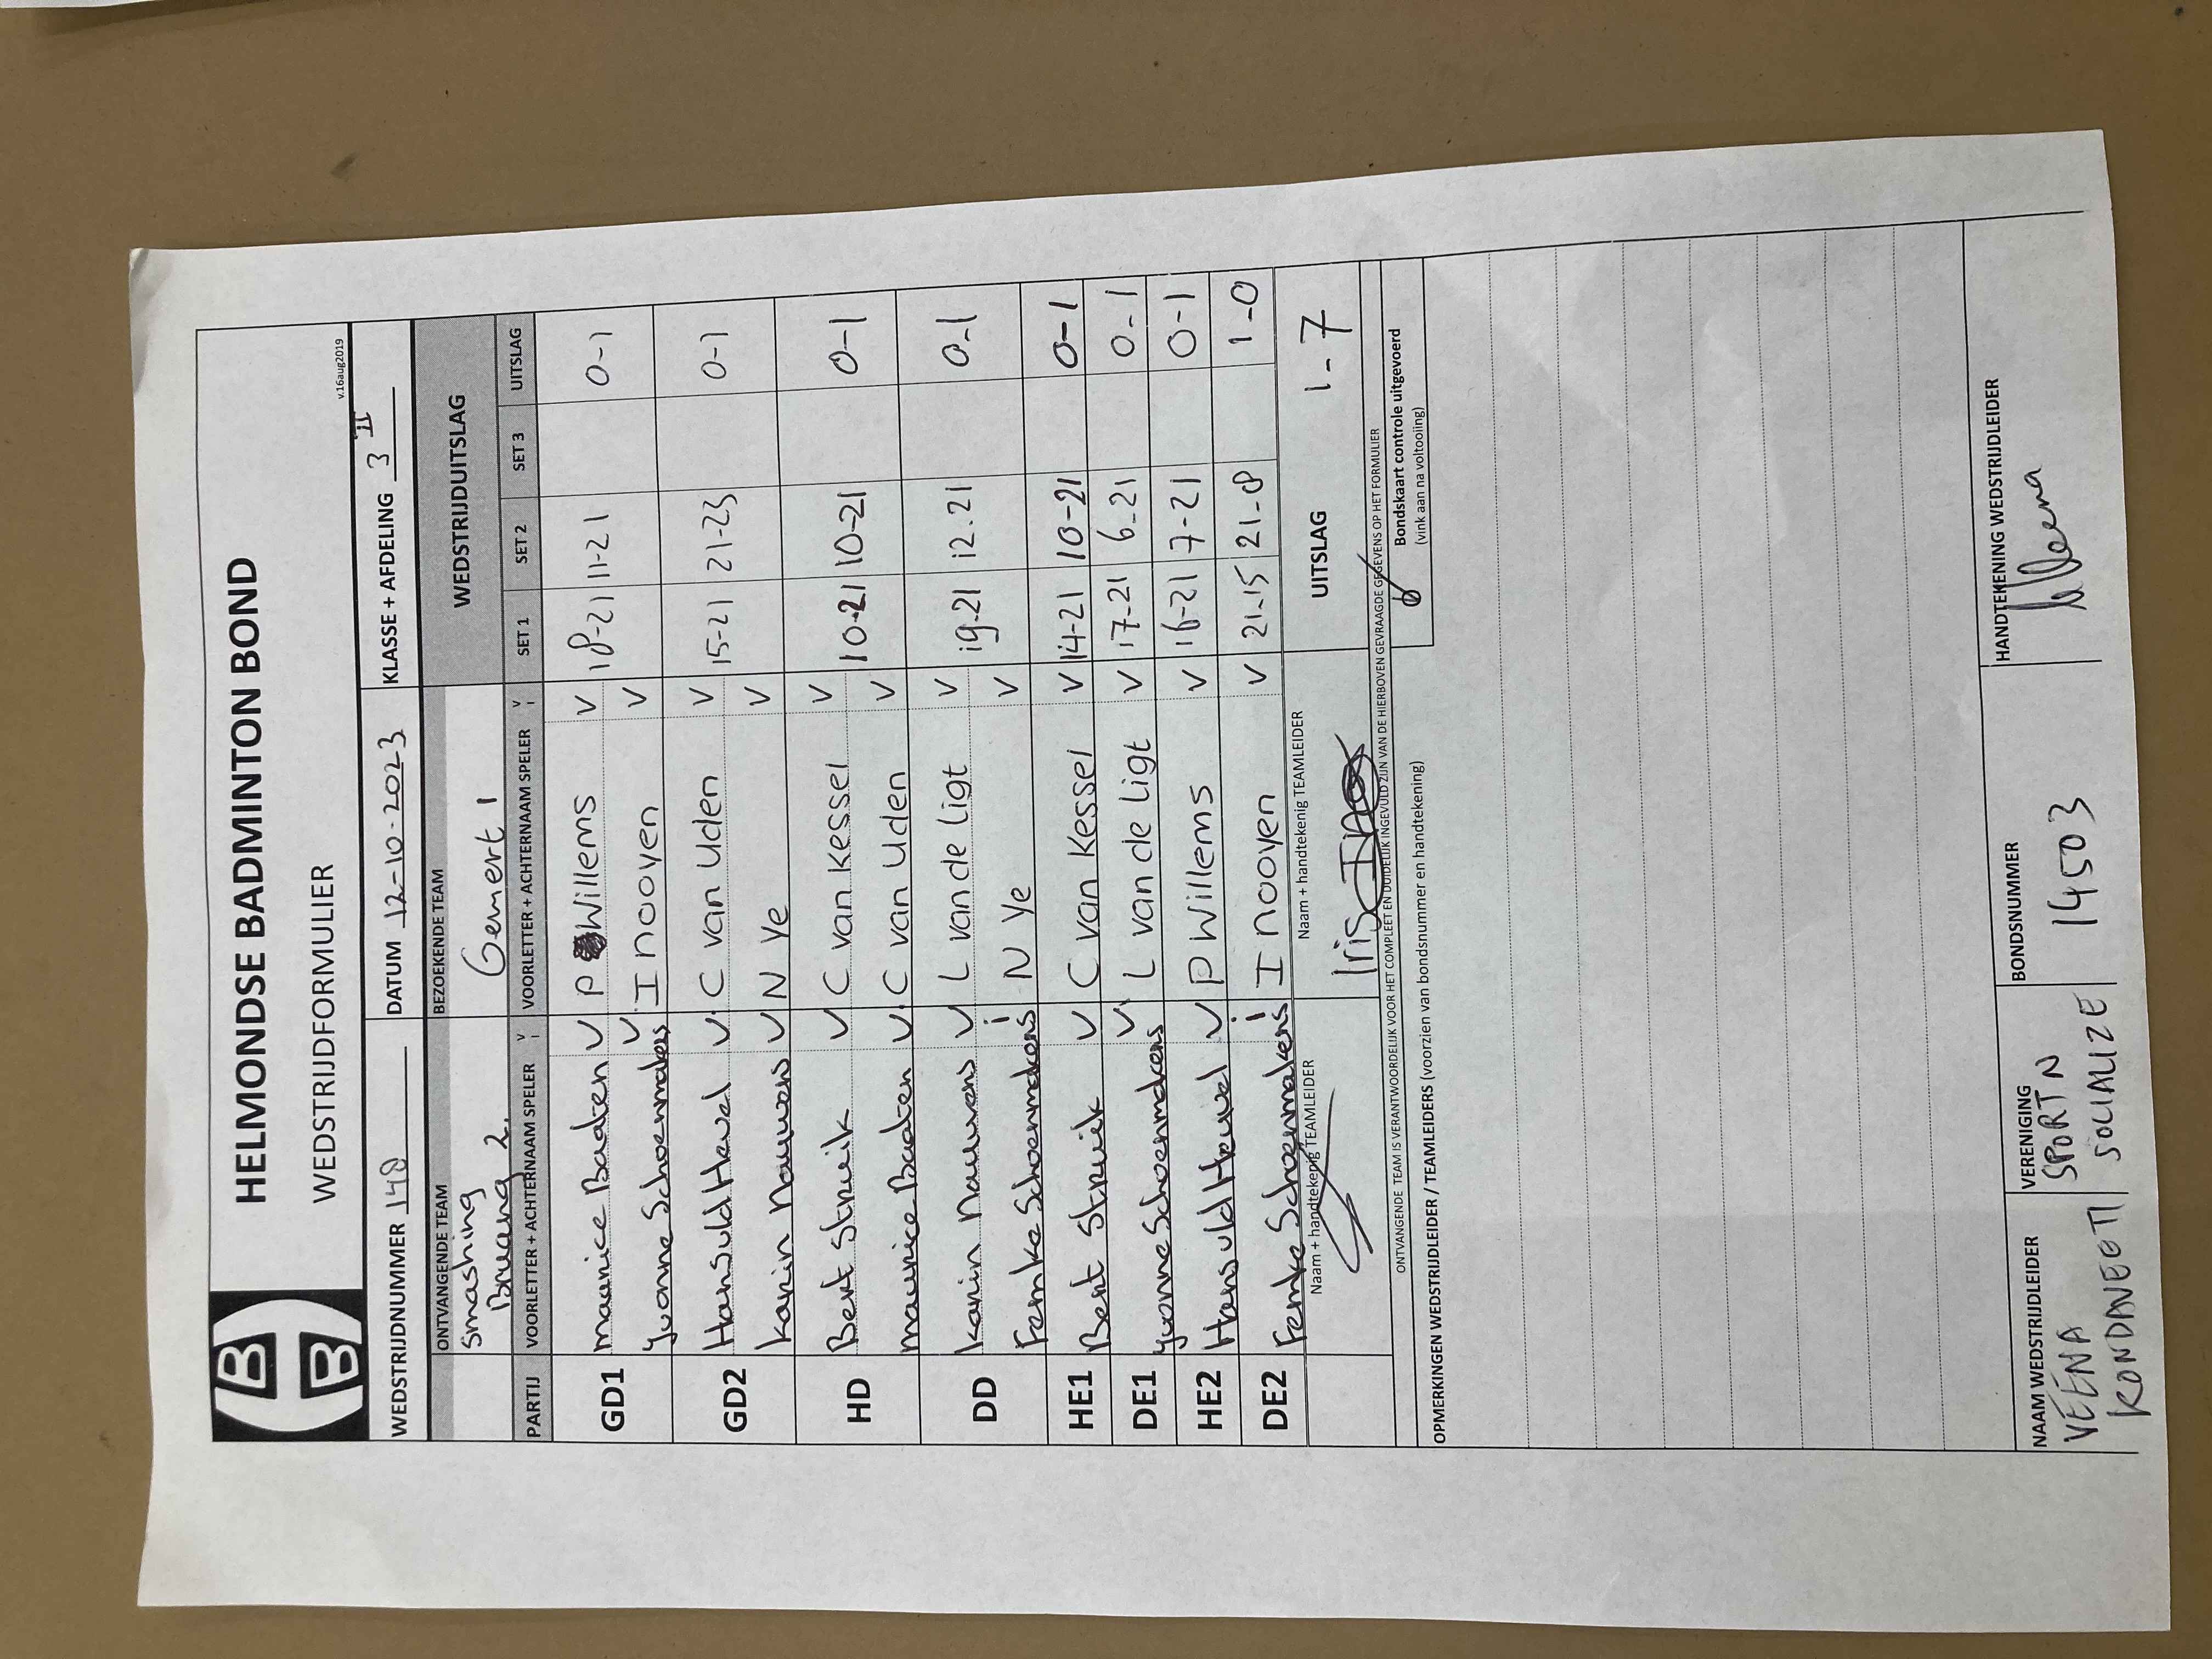 HELMONDSE BADMINTON BOND
WEDSTRIJDFORMULIER
v.16aug2019
WEDSTRIJDNUMMER 148 DATUM 12-10-2023 KLASSE + AFDELING 3 II
ONTVANGENDE TEAM BEZOEKENDE TEAM WEDSTRIJDUITSLAG
Smashing
Bruang 2. Gemert 1
PARTIJ VOORLETTER + ACHTERNAAM SPELER V i VOORLETTER + ACHTERNAAM SPELER V i SET 1 SET 2 SET 3 UITSLAG
GD1 maurice Baaten V P Willems V 18-21 11-21 0-1
Yvonne Schoenmakers V I nooyen V
GD2 Hans vld Heuvel V C van Uden V 15-21 21-23 0-1
Karin Nauwens V N Ye V
HD Bert Struik V C van Kessel V 10-21 10-21 0-1
maurice Baaten V C van Uden V
DD Karin Nauwens V L van de Ligt V 19-21 12-21 0-1
Femke Schoenmakers i N Ye V
HE1 Bert Struik V C van Kessel V 14-21 10-21 0-1
DE1 Yvonne Schoenmakers V L van de Ligt V 17-21 6-21 0-1
HE2 Hans vld Heuvel V P Willems V 16-21 7-21 0-1
DE2 Femke Schoenmakers i I nooyen V 21-15 21-8 1-0
Naam + handtekenig TEAMLEIDER Naam + handtekenig TEAMLEIDER UITSLAG 1-7
Iris
ONTVANGENDE TEAM IS VERANTWOORDELIJK VOOR HET COMPLEET EN DUIDELIJK INGEVULD ZIJN VAN DE HIERBOVEN GEVRAAGDE GEGEVENS OP HET FORMULIER
Bondskaart controle uitgevoerd
(vink aan na voltooiing)
OPMERKINGEN WEDSTRIJDLEIDER / TEAMLEIDERS (voorzien van bondsnummer en handtekening)
NAAM WEDSTRIJDLEIDER VERENIGING BONDSNUMMER HANDTEKENING WEDSTRIJDLEIDER
VEENA SPORT N 14503 Veena
KONDAVEETI SOCIALIZE